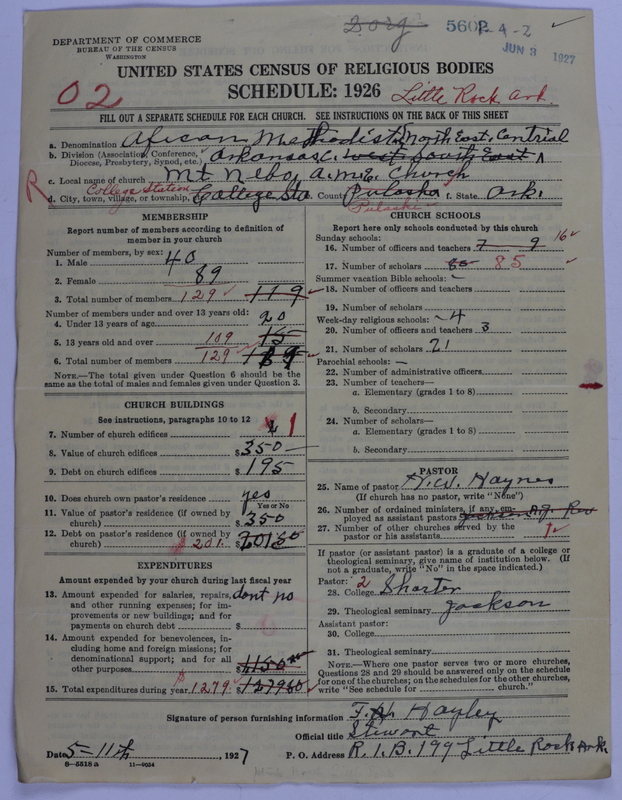 2 org 5602-4-2
DEPARTMENT OF COMMERCE
BUREAU OF THE CENSUS
WASHINGTON
JUN 3 1927
UNITED STATES CENSUS OF RELIGIOUS BODIES
SCHEDULE: 1926
02 Little Rock Ark.
FILL OUT A SEPARATE SCHEDULE FOR EACH CHURCH. SEE INSTRUCTIONS ON THE BACK OF THIS SHEET
a. Denomination African Methodist North East, Central
b. Division (Association, Conference, Diocese, Presbytery, Synod, etc.) Arkansas C. west South East
c. Local name of church Mt Nebo, A.M.E. Church
R College Station
d. City, town, village, or township, College Sta County Pulaska f. State Ark.
Pulaski
MEMBERSHIP
Report number of members according to definition of member in your church
Number of members, by sex:
1. Male 40
2. Female 89
3. Total number of members 129 119
Number of members under and over 13 years old:
4. Under 13 years of age 20
5. 13 years old and over 109 15
6. Total number of members 129 139
NOTE.—The total given under Question 6 should be the same as the total of males and females given under Question 3.
CHURCH BUILDINGS
See instructions, paragraphs 10 to 12
7. Number of church edifices 1
8. Value of church edifices $350
9. Debt on church edifices $195
10. Does church own pastor's residence yes
Yes or No
11. Value of pastor's residence (if owned by church) $350
12. Debt on pastor's residence (if owned by church) $201. $20150
EXPENDITURES
Amount expended by your church during last fiscal year
13. Amount expended for salaries, repairs, and other running expenses; for improvements or new buildings; and for payments on church debt $ dont no
14. Amount expended for benevolences, including home and foreign missions; for denominational support; and for all other purposes $1150
15. Total expenditures during year $1279. $127960
CHURCH SCHOOLS
Report here only schools conducted by this church
Sunday schools:
16. Number of officers and teachers 7 9 16
17. Number of scholars 85 85
Summer vacation Bible schools: —
18. Number of officers and teachers
19. Number of scholars
Week-day religious schools: 4
20. Number of officers and teachers 3
21. Number of scholars 21
Parochial schools: —
22. Number of administrative officers
23. Number of teachers—
a. Elementary (grades 1 to 8)
b. Secondary
24. Number of scholars—
a. Elementary (grades 1 to 8)
b. Secondary
PASTOR
25. Name of pastor H.W. Haynes
(If church has no pastor, write "None")
26. Number of ordained ministers, if any, employed as assistant pastors
27. Number of other churches served by the pastor or his assistants 1
If pastor (or assistant pastor) is a graduate of a college or theological seminary, give name of institution below. (If not a graduate, write "No" in the space indicated.)
Pastor: 2
28. College Shorter
29. Theological seminary Jackson
Assistant pastor:
30. College
31. Theological seminary
NOTE.—Where one pastor serves two or more churches, Questions 28 and 29 should be answered only on the schedule for one of the churches; on the schedules for the other churches, write "See schedule for church."
Signature of person furnishing information F.H. Hayley
Official title Stewart
Date 5-11th, 1927 P. O. Address R. 1. B. 199 Little Rock Ark.
8-5518 a 11-9034